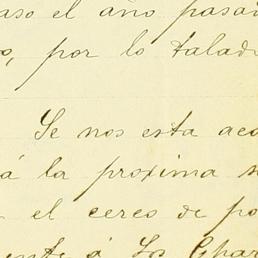 aso el año pasad
o, por lo talad
Se nos esta aca
á la proxima s
el cerco de po
ente á